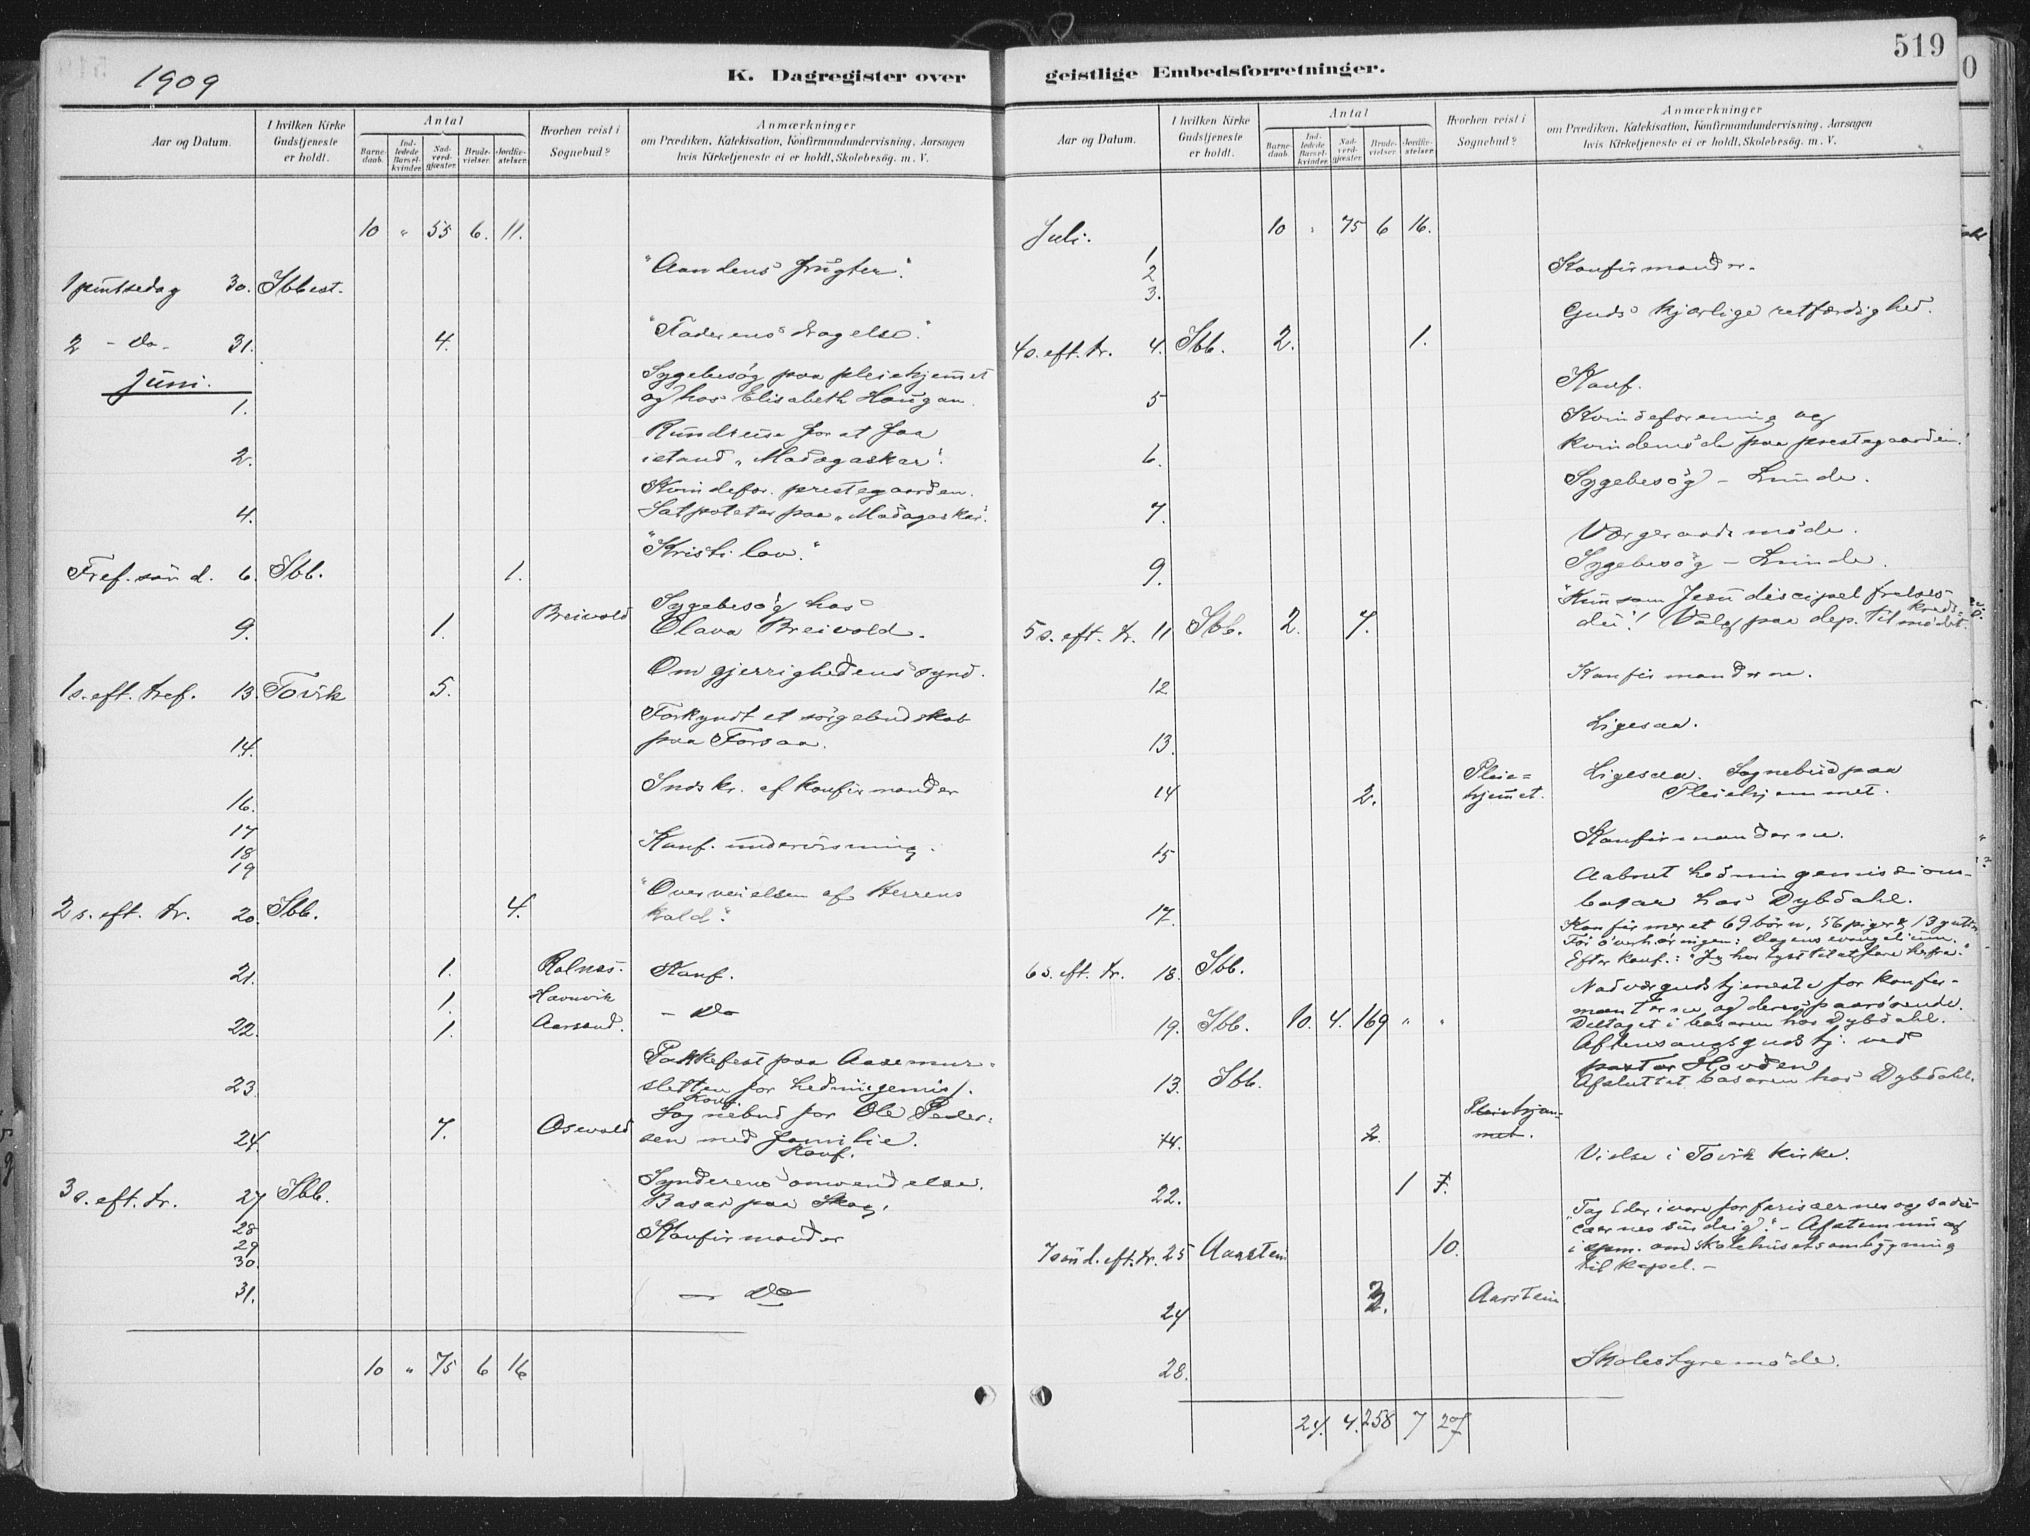 1909
K. Dagregister over
Aar og Datum.
I hvilken Kirke Gudstjeneste er holdt.
Antal
Barnedaab.
Indledede Barselkvinder.
Nadverdgjæster.
Brudevielser.
Jordfæstelser.
Hvorhen reist i Sognebud?
Anmærkninger
om Prædiken, Katekisation, Konfirmandundervisning, Aarsagen
hvis Kirketjeneste ei er holdt, Skolebesög. m. V.
10 " 55 6. 11.
1 pintsedag 30. Ibbest. "Aandens frugter".
2 - do - 31. 4. "Faderens dragelse".
Juni.
1. Sygebesøg paa pleiehjemmet
og hos Elisabeth Haugan.
2. Rundreise for at faa
istand "Madagaskar".
4. Kvindefor. prestegaarden.
Sat poteter paa "Madagaskar".
Tref. sönd. 6. Ibb. 1. "Kristi lov."
9. 1. Breivold Sygebesøg hos
Olava Breivold.
1 s. eft. tref. 13. Tovik 5. Om gjerrighedens synd.
14. Forkyndt et sörgebudskab
paa Forsaa.
16. Indskr. af konfirmander
17
18 Konf. undervisning.
19
2 s. eft. tr. 20. Ibb. 4. "Overveielsen af Herrens
kald".
21. 1. Rolnæs. Konf.
1. Havnvik
22. 1. Aarsand. - Do
23. Pakkefest paa Aasemur-
sletten for hedningemis/.
Konf.
24. 7. Osevold Sognebud for Ole Peder-
sen med familie.
Konf.
3 s. eft. tr. 27 Ibb. Synderens omvendelse.
Basar paa Skog.
28 Konfirmander
29
30.
31. - Do
10 " 75 6 16
519
geistlige Embedsforretninger.
Aar og Datum.
I hvilken Kirke Gudstjeneste er holdt.
Antal
Barnedaab.
Indledede Barselkvinder.
Nadverdgjæster.
Brudevielser.
Jordfæstelser.
Hvorhen reist i Sognebud?
Anmærkninger
om Prædiken, Katekisation, Konfirmandundervisning, Aarsagen
hvis Kirketjeneste ei er holdt, Skolebesög. m. V.
Juli. 10 " 75 6 16.
1
2 Konfirmander.
3.
4 s. eft. tr. 4. Ibb. 2. 1. Guds kjærlige retfærdighed.
5 Konf.
6. Kvindeforening og
kvindemöde paa prestegaarden.
7. Sygebesøg - Lunde.
Værgeraadsmöde.
9. Sygebesøg - Lunde.
5 s. eft. tr. 11 Ibb. 2. 7. "Kun som Jesu discipel frelses
du"! Valg paa dep. til kreds-
mødet.
12 Konfirmanderne.
13. Ligesaa.
14 2. Pleie-
hjemmet. Ligesaa. Sognebud paa
Pleiehjemmet.
15 Konfirmanderne.
17. Aabnet hedningemissions-
basar hos Dybdahl.
6 s. eft. tr. 18. Ibb. Konfirmeret 69 börn, 56 piger & 13 gutter
För överhöringen: Dagens evangelium.
Efter konf.:
19. Ibb. 10. 4. 169 " " Nadværgudstjeneste for konfir-
manterne og deres paarörende.
Deltaget i basaren hos Dybdahl.
13. Ibb. Aftensangsgudstj. ved
pastor Hovden
Afsluttet basaren hos Dybdahl.
14. 2. Pleiehjem-
met.
22. 1 7. Vielse i Tovik kirke.
7 sönd. eft. tr. 25 Aarstein 10. "Tag Eder ivare for farisæernes og sadu-
cæernes surdeig". - Afstemning
i spm. om skolehusets ombygning
til kapel. -
24 2. Aarstein
28. Skolestyremöde.
24. 4. 258 7 27